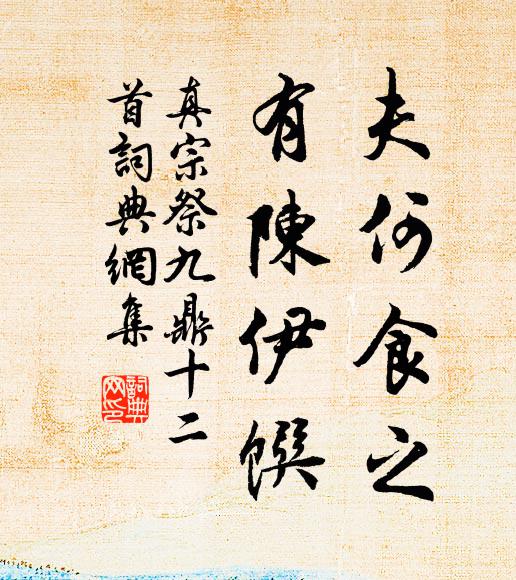 夫何食之
有陳伊饌
真宗祭九鼎十二
首詞典網集
詞典网印